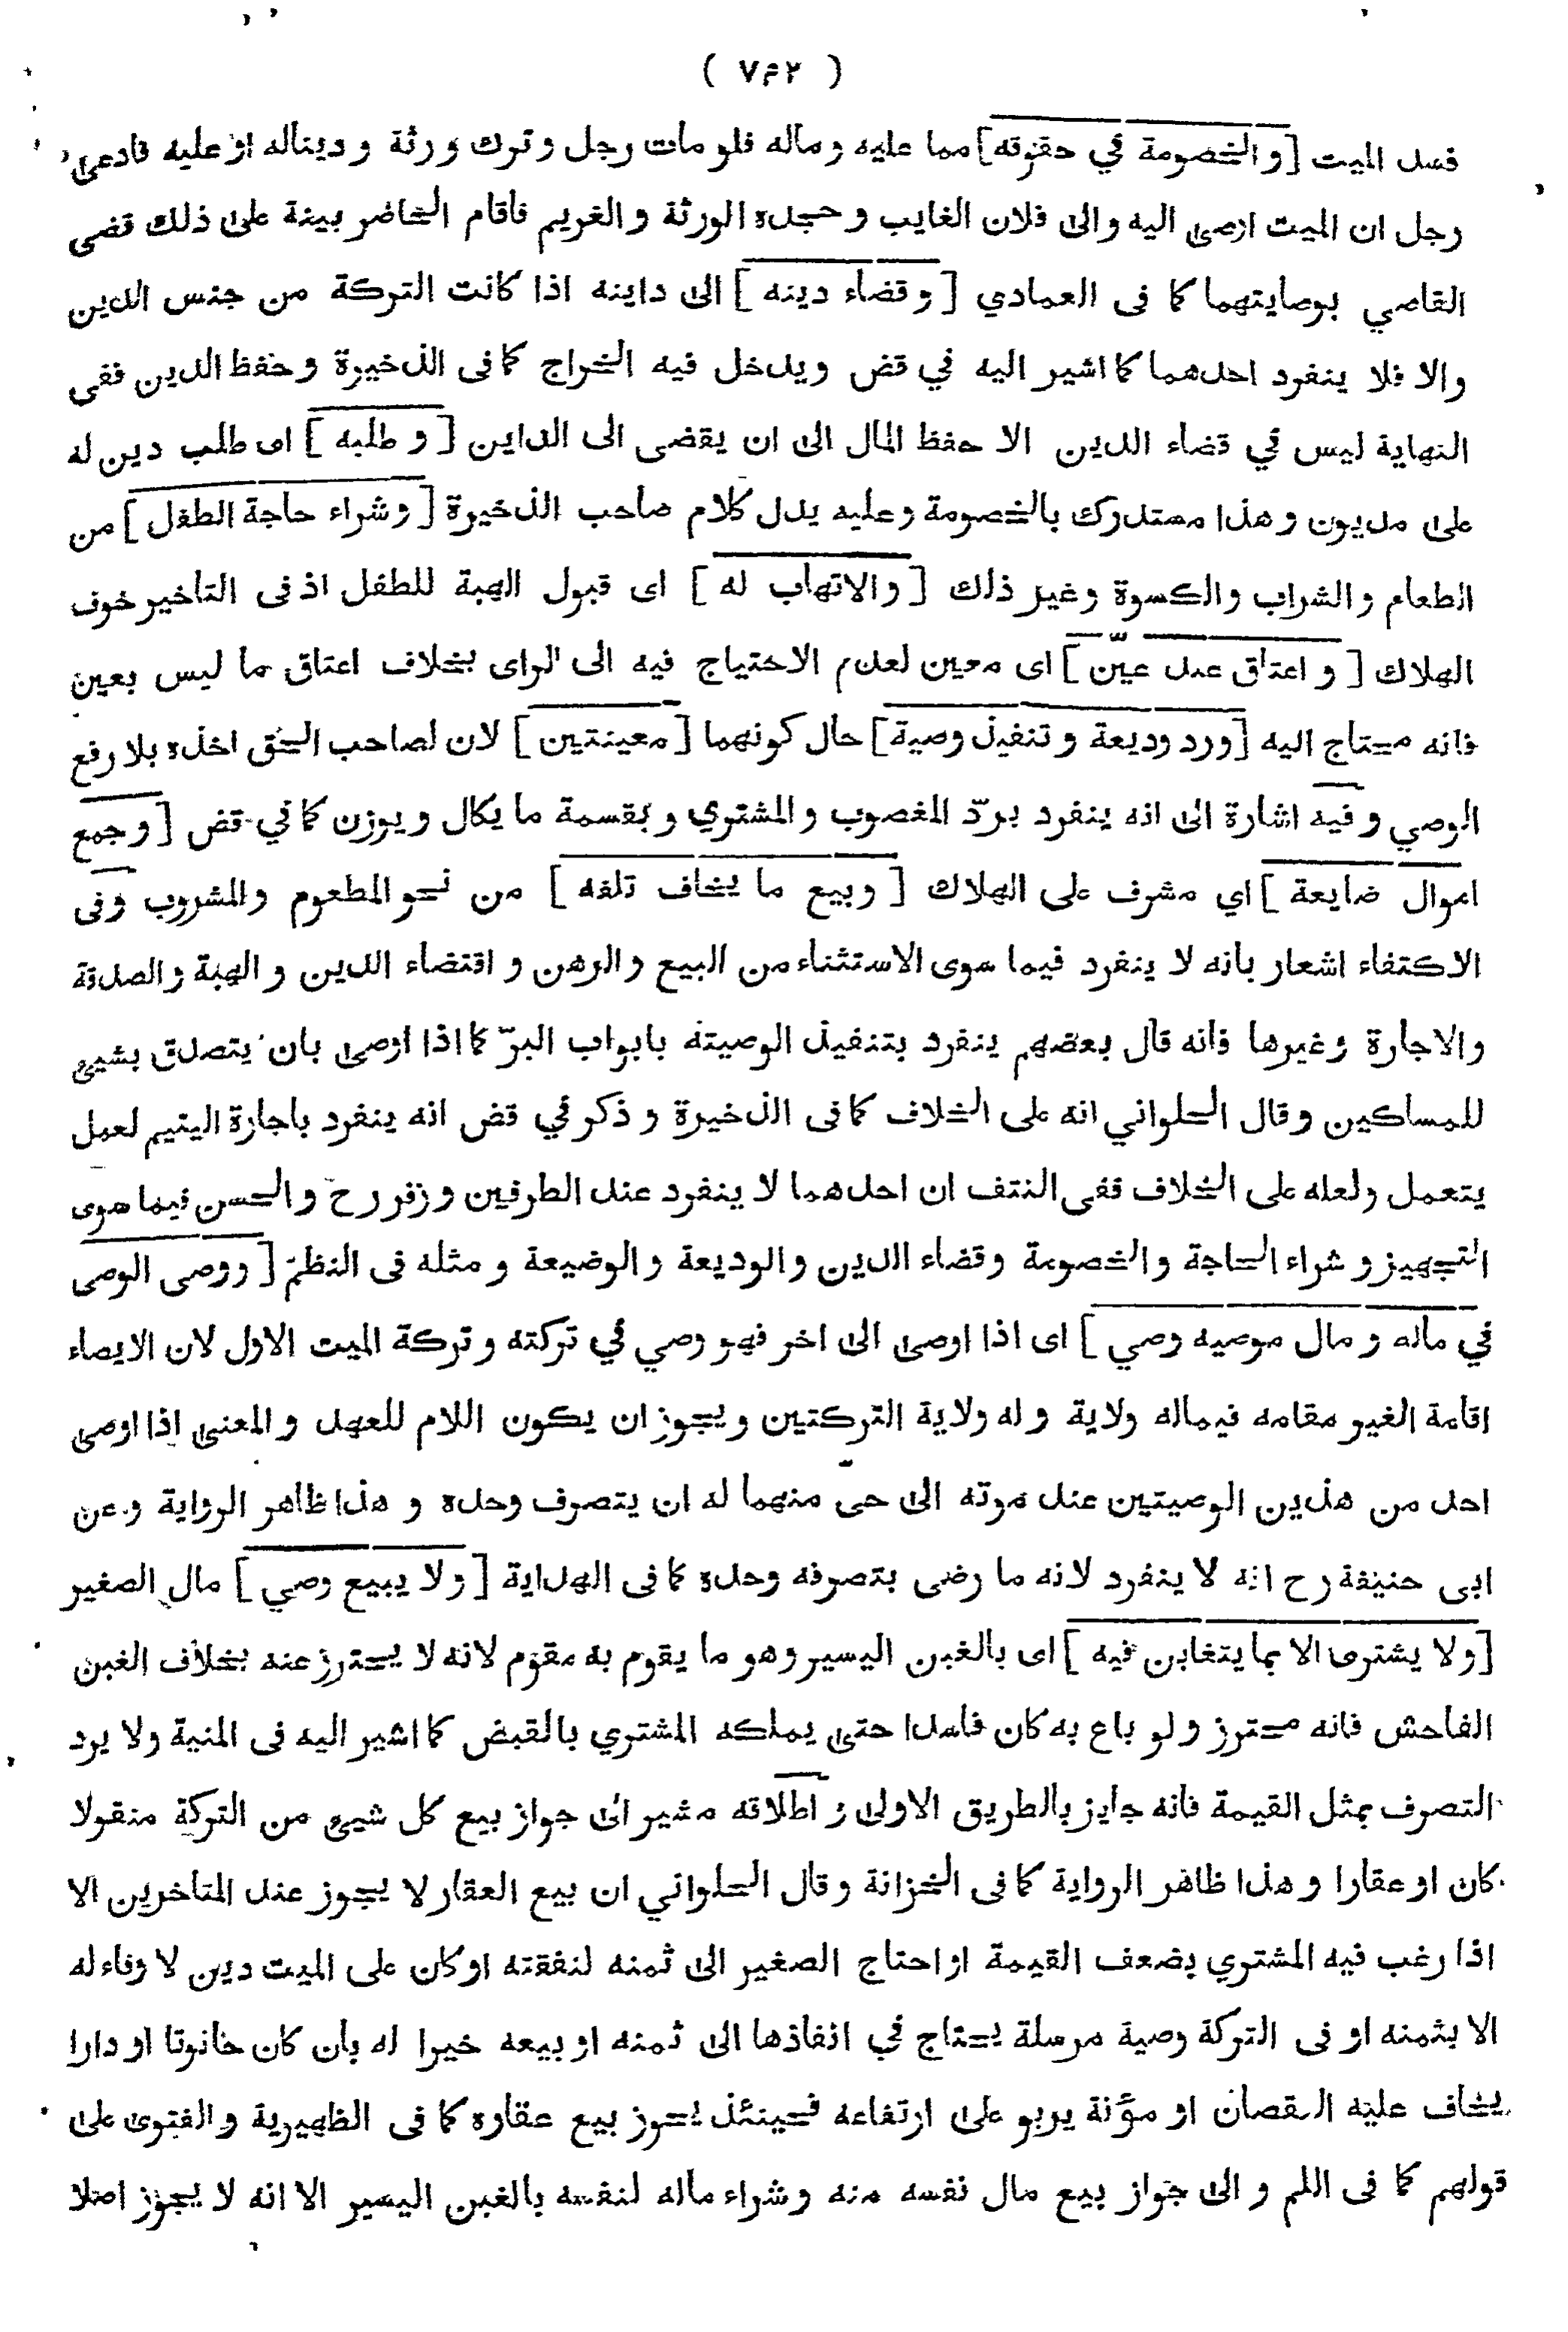 ( ٧٤٢ )
فسد الميت [ و الخصومة في حقوقه ] مما عليه و ماله فلو مات رجل و ترك ورثة و ديناله او عليه فادعى
رجل ان الميت اوصى اليه و الى فلان الغايب و حجده الورثة و الغريم فاقام الحاضر بينة على ذلك قضى
القاضي بوصايتهما كما فى العمادي [ و قضاء دينه ] الى داينه اذا كانت التركة من جنس الدين
والا فلا ينفرد احدهما كما اشير اليه في قض ويدخل فيه الخراج كما فى الذخيرة و حفظ الدين ففى
النهاية ليس في قضاء الدين الا حفظ المال الى ان يقضى الى الداين [ و طلبه ] اى طلب دين له
على مديون و هذا مستدرك بالخصومة و عليه يدل كلام صاحب الذخيرة [ و شراء حاجة الطفل ] من
الطعام و الشراب والكسوة و غير ذلك [ و الاتهاب له ] اى قبول الهبة للطفل اذ فى التاخير خوف
الهلاك [ و اعتاق عبد عيّن ] اى معين لعدم الاحتياج فيه الى الراى بخلاف اعتاق ما ليس بعين
فانه محتاج اليه [ ورد وديعة و تنفيذ وصية ] حال كونهما [ معينتين ] لان لصاحب الحق اخذه بلا رفع
الوصي و فيه اشارة الى انه ينفرد بردّ المغصوب و المشتري و بقسمة ما يكال و يوزن كما في قض [ و جمع
اموال ضايعة ] اي مشرف على الهلاك [ و بيع ما يخاف تلفه ] من نحو المطعوم و المشروب وفى
الاكتفاء اشعار بانه لا ينفرد فيما سوى الاستثناء من البيع و الرهن و اقتضاء الدين و الهبة و الصدقة
والاجارة و غيرها فانه قال بعضهم ينفرد بتنفيذ الوصيته بابواب البرّ كما اذا اوصى بان يتصدق بشيئ
للمساكين و قال الحلواني انه على الخلاف كما فى الذخيرة و ذكر في قض انه ينفرد باجارة اليتيم لعمل
يتعمل ولعله على الخلاف ففى النتف ان احدهما لا ينفرد عند الطرفين و زفر رح و الحسن فيما سوى
التجهيز و شراء الحاجة و الخصومة و قضاء الدين و الوديعة و الوضيعة و مثله فى النظم [ ووصى الوصى
في ماله و مال موصيه وصي ] اى اذا اوصى الى اخر فهو وصي في تركته و تركة الميت الاول لان الايصاء
اقامة الغير مقامه فيماله ولاية و له ولاية التركتين و يجوز ان يكون اللام للعهد و المعنى اذا اوصى
احد من هذين الوصيتين عند موته الى حى منهما له ان يتصرف وحده و هذا ظاهر الرواية و عن
ابى حنيفة رح انه لا ينفرد لانه ما رضى بتصرفه وحده كما فى الهداية [ ولا يبيع وصي ] مال الصغير
[ ولا يشترى الا بما يتغابن فيه ] اى بالغبن اليسير و هو ما يقوم به مقوّم لانه لا يحترز عنه بخلاف الغبن
الفاحش فانه محترز و لو باع به كان فاسدا حتى يملكه المشتري بالقبض كما اشير اليه فى المنية ولا يرد
التصرف بمثل القيمة فانه جايز بالطريق الاولى و اطلاقه مشير الى جواز بيع كل شيئ من التركة منقولا
كان او عقارا و هذا ظاهر الرواية كما فى الخزانة و قال الحلواني ان بيع العقار لا يجوز عند المتاخرين الا
اذا رغب فيه المشتري بضعف القيمة او احتاج الصغير الى ثمنه لنفقته او كان على الميت دين لا وفاء له
الا بثمنه او فى التركة وصية مرسلة يحتاج في انفاذها الى ثمنه او بيعه خيرا له بأن كان حانوتا او دارا
يخاف عليه النقصان او مؤنة يربو على ارتفاعه فحينئذ يجوز بيع عقاره كما فى الظهيرية و الفتوى على
قولهم كما فى اللم و الى جواز بيع مال نفسه منه و شراء ماله لنفسه بالغبن اليسير الا انه لا يجوز اصلا